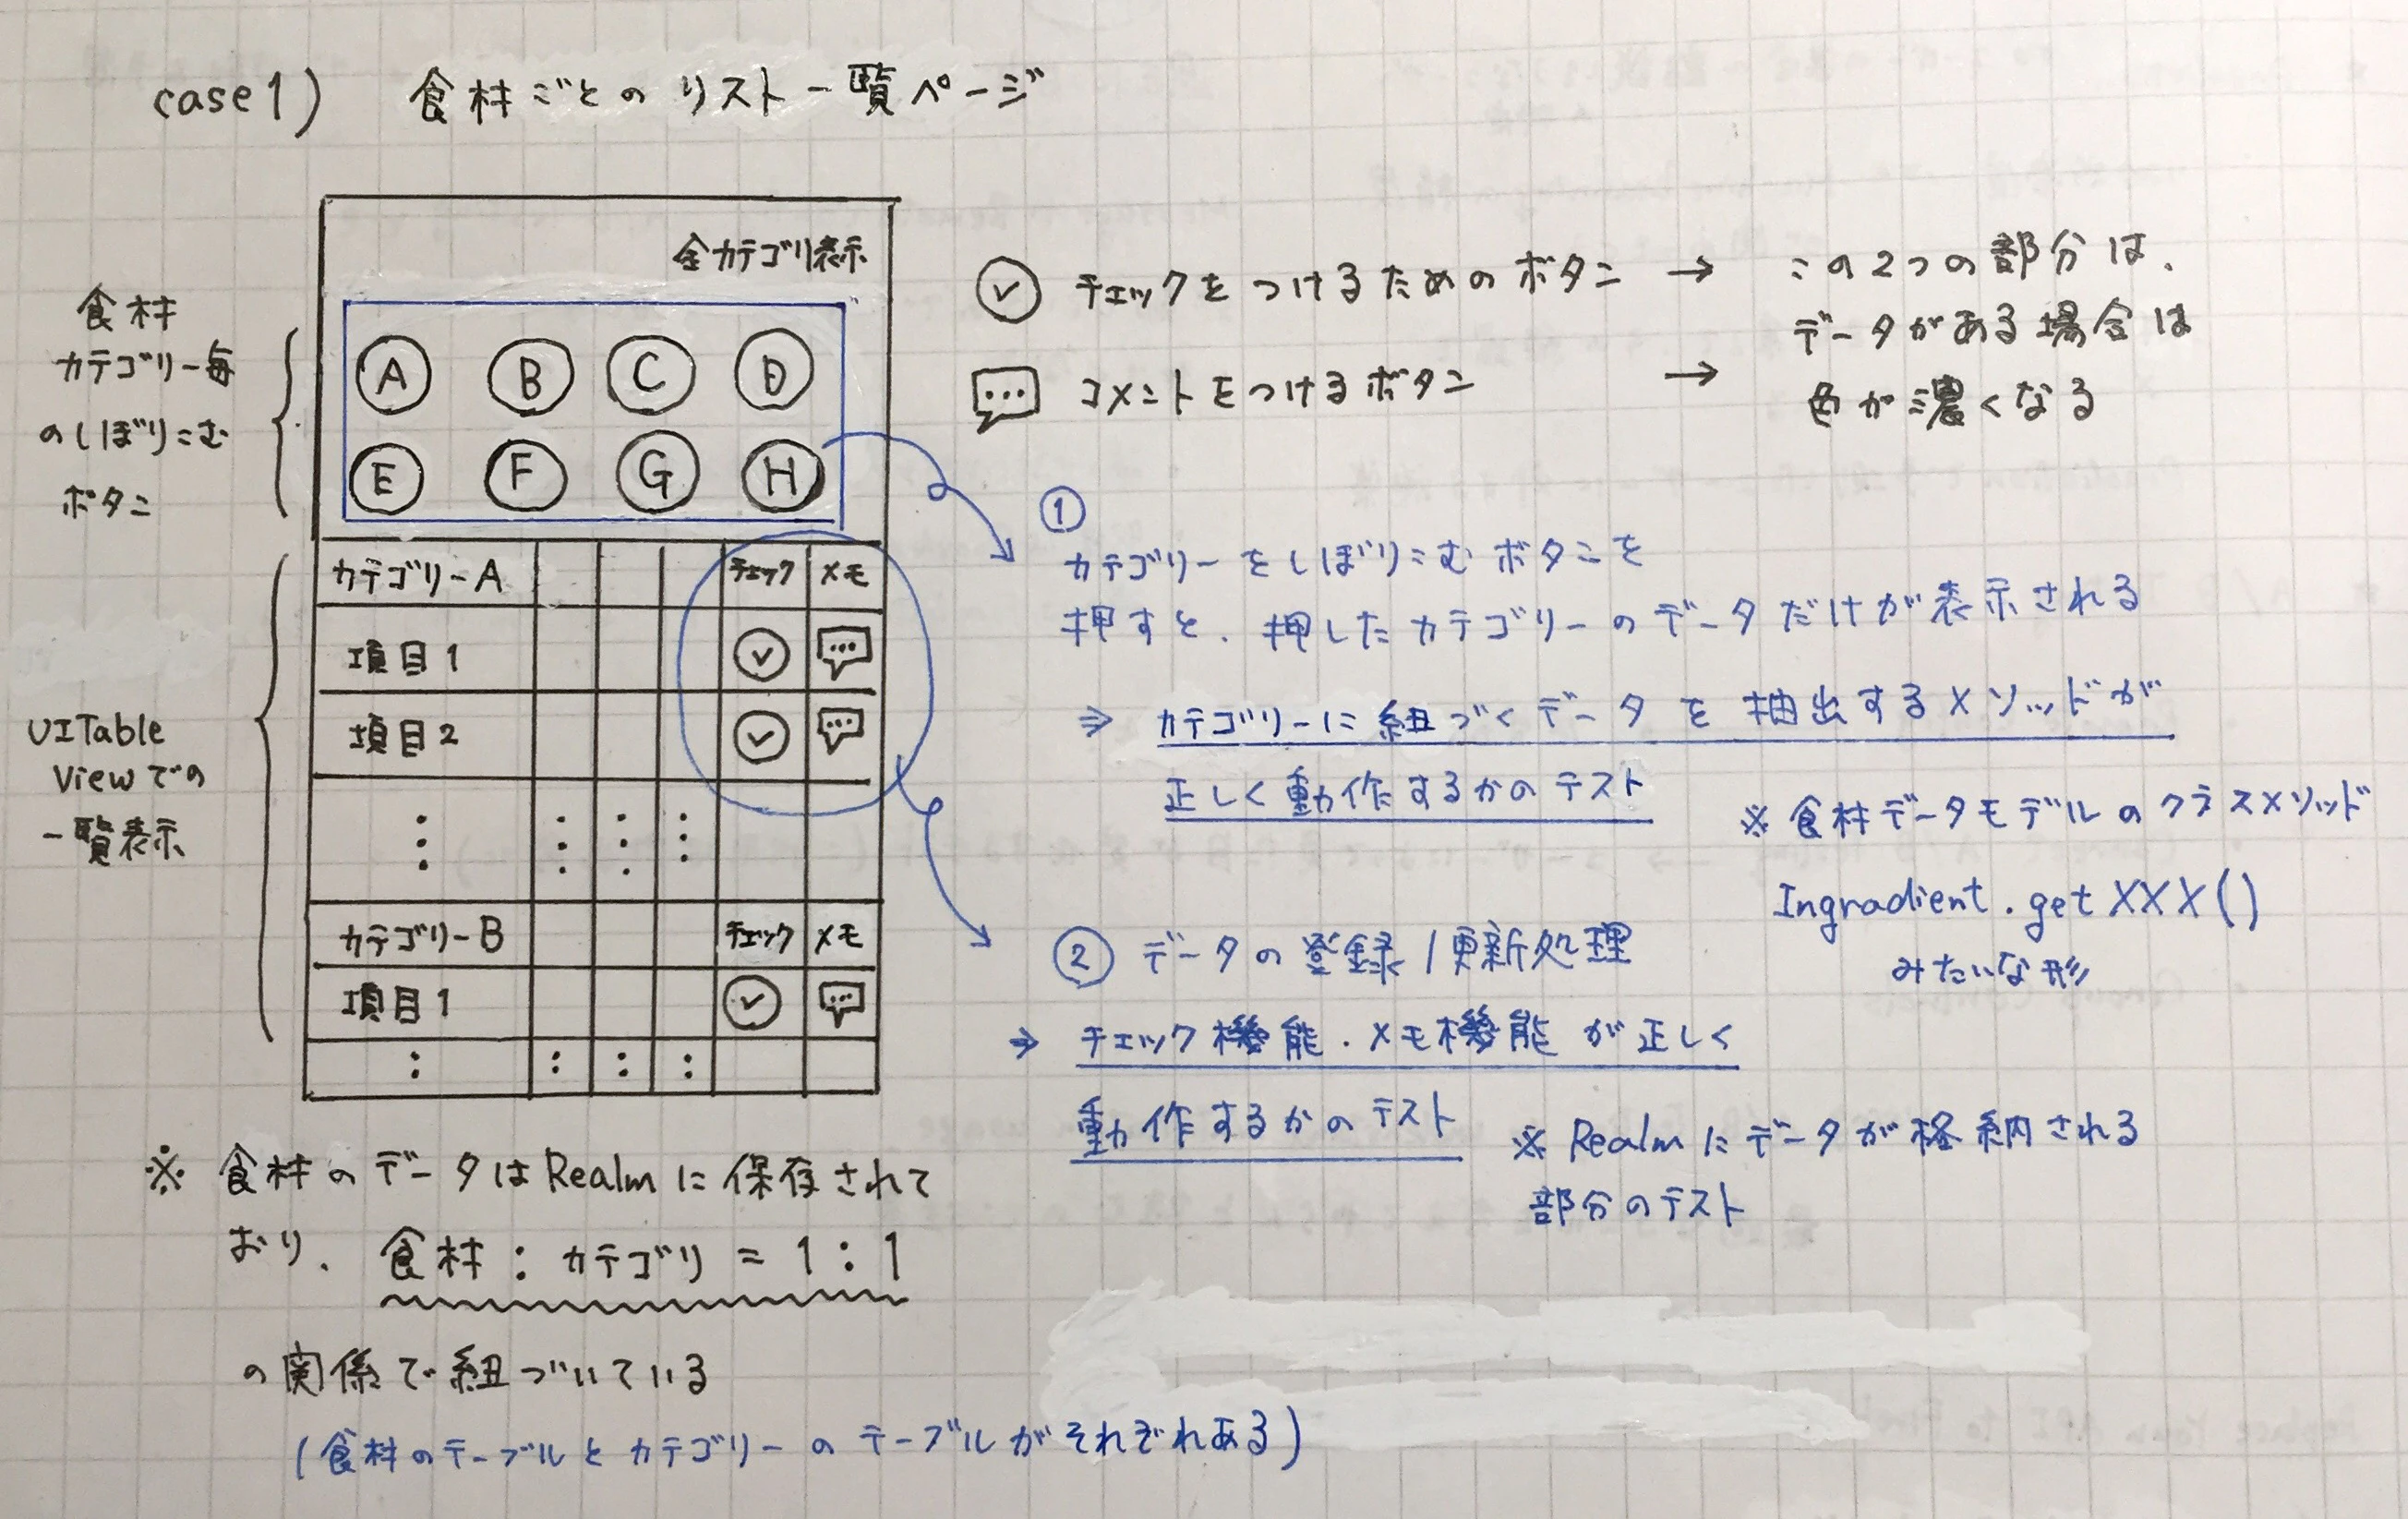 case1) 食材ごとのリスト一覧ページ
全カテゴリ表示
食材
カテゴリー毎
のしぼりこむ
ボタン
A B C D
E F G H
チェックをつけるためのボタン → この2つの部分は、
データがある場合は
コメントをつけるボタン →
色が濃くなる
UITable
Viewでの
一覧表示
カテゴリーA チェック メモ
項目1
項目2
カテゴリーB チェック メモ
項目1
①
カテゴリーをしぼりこむボタンを
押すと、押したカテゴリーのデータだけが表示される
⇒ カテゴリーに紐づくデータを抽出するメソッドが
正しく動作するかのテスト
※ 食材データモデルのクラスメソッド
Ingradient.getXXX()
みたいな形
② データの登録/更新処理
⇒ チェック機能・メモ機能が正しく
動作するかのテスト
※ Realmにデータが格納される
部分のテスト
※ 食材のデータはRealmに保存されて
おり、食材:カテゴリ=1:1
の関係で紐づいている
(食材のテーブルとカテゴリーのテーブルがそれぞれある)